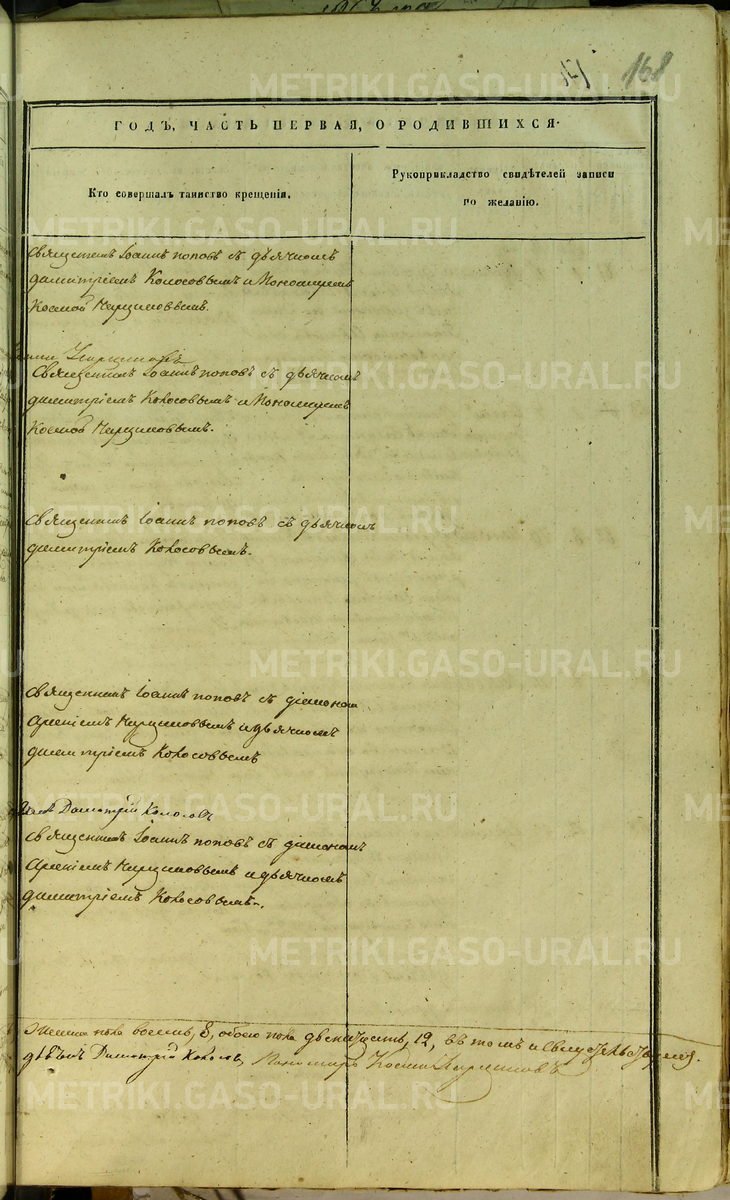 168
ГОДЪ, ЧАСТЬ ПЕРВАЯ, О РОДИВШИХСЯ.
Кто совершалъ таинство крещенія.
Рукоприкладство свидѣтелей записи
по желанію.
Священникъ Іоаннъ поповъ съ дьячкомъ
димитріемъ Колосовымъ и Пономаремъ
Космою
Священникъ Іоаннъ поповъ съ дьячкомъ
димитріемъ Колосовымъ и Пономаремъ
Космою
Священникъ Іоаннъ поповъ съ дьячкомъ
димитріемъ Колосовымъ.
Священникъ Іоаннъ поповъ съ діакономъ
и дьячкомъ
димитріемъ Колосовымъ
Димитрій Колосовъ
Священникъ Іоаннъ поповъ съ діакономъ
и дьячкомъ
димитріемъ Колосовымъ.
женска пола восемь, 8, обоего пола двенатцеть, 12, въ томъ и
Димитрій Колосовъ Пономарь Косма
METRIKI.GASO-URAL.RU